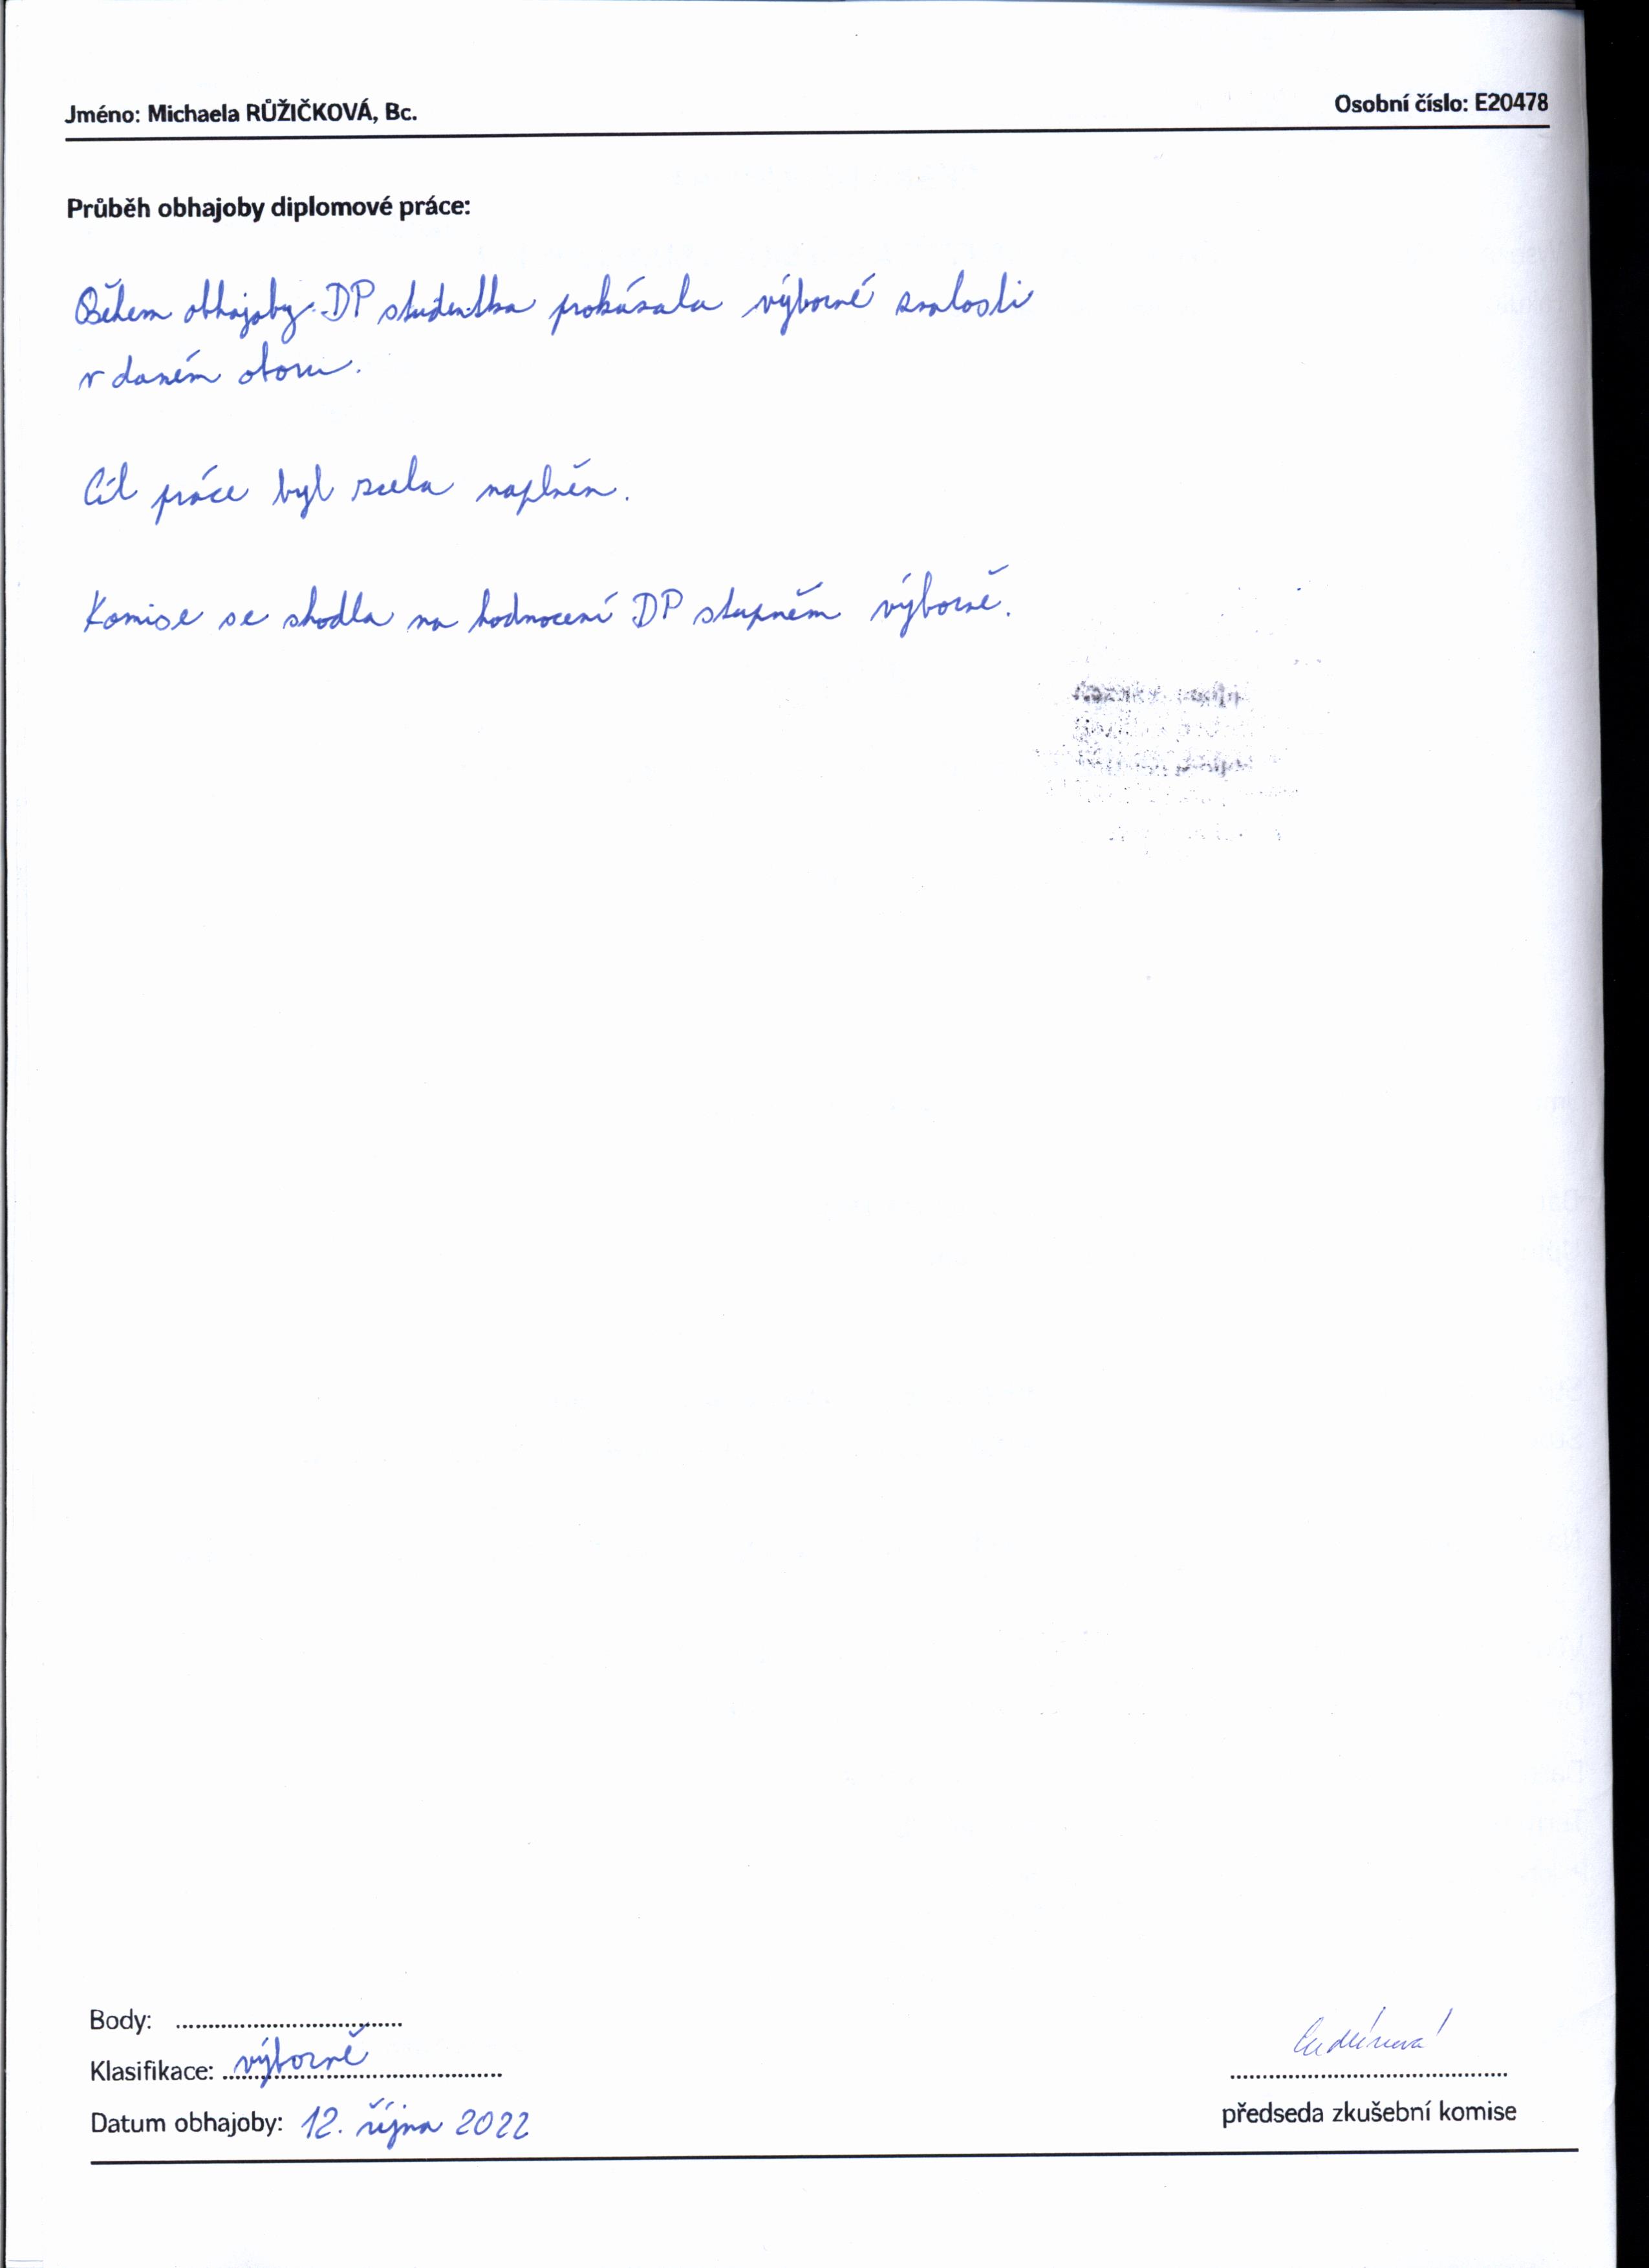 Jméno: Michaela RŮŽIČKOVÁ, Bc.
Osobní číslo: E20478
Průběh obhajoby diplomové práce:
Během obhajoby DP studentka prokázala výborné znalosti
v daném oboru.
Cíl práce byl zcela naplněn.
Komise se shodla na hodnocení DP stupněm výborně.
Body: ........................................
Klasifikace: výborně
Datum obhajoby: 12. října 2022
předseda zkušební komise